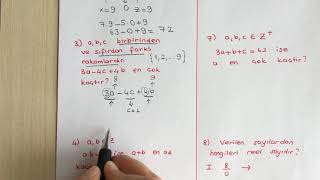 x=9 0 z=9
7.9-5.0+9
63-0+9=72
3) a,b,c birbirinden
ve sıfırdan farklı
rakamlardır {1,2,..9}
3a-4c+4b en çok
kaçtır? 8 9
3a-4c+4b
çok
4) a,b,c Z
a+b en az
kaçtır
7) a,b,c ∈ Z⁺
3a+b+c=42 ise
a en çok kaçtır?
8) Verilen sayılardan
hangileri reel sayıdır?
I. 8/0 →